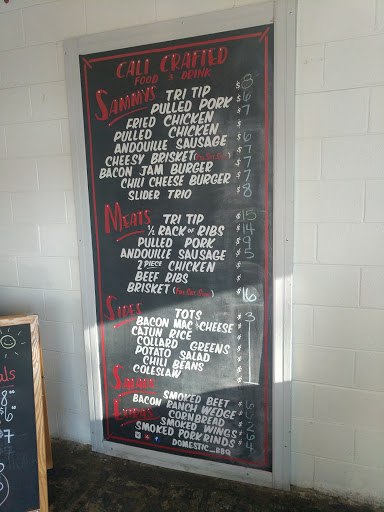 CALI CRAFTED
FOOD & DRINK
SAMMYS TRI TIP $8
PULLED PORK $6
FRIED CHICKEN $7
PULLED CHICKEN $
ANDOUILLE SAUSAGE $6
CHEESY BRISKET $7
BACON JAM BURGER $7
CHILI CHEESE BURGER $7
SLIDER TRIO $8
MEATS TRI TIP $15
1/2 RACK OF RIBS $14
PULLED PORK $9
ANDOUILLE SAUSAGE $5
2 PIECE CHICKEN $
BEEF RIBS $
BRISKET $16
SIDES TOTS $3
BACON MAC & CHEESE $
CAJUN RICE $
COLLARD GREENS $
POTATO SALAD $
CHILI BEANS $
COLESLAW $
SALADS SMOKED BEET $
BACON RANCH WEDGE $
EXTRAS CORNBREAD $
SMOKED WINGS $
SMOKED PORK RINDS $
DOMESTIC_BBQ